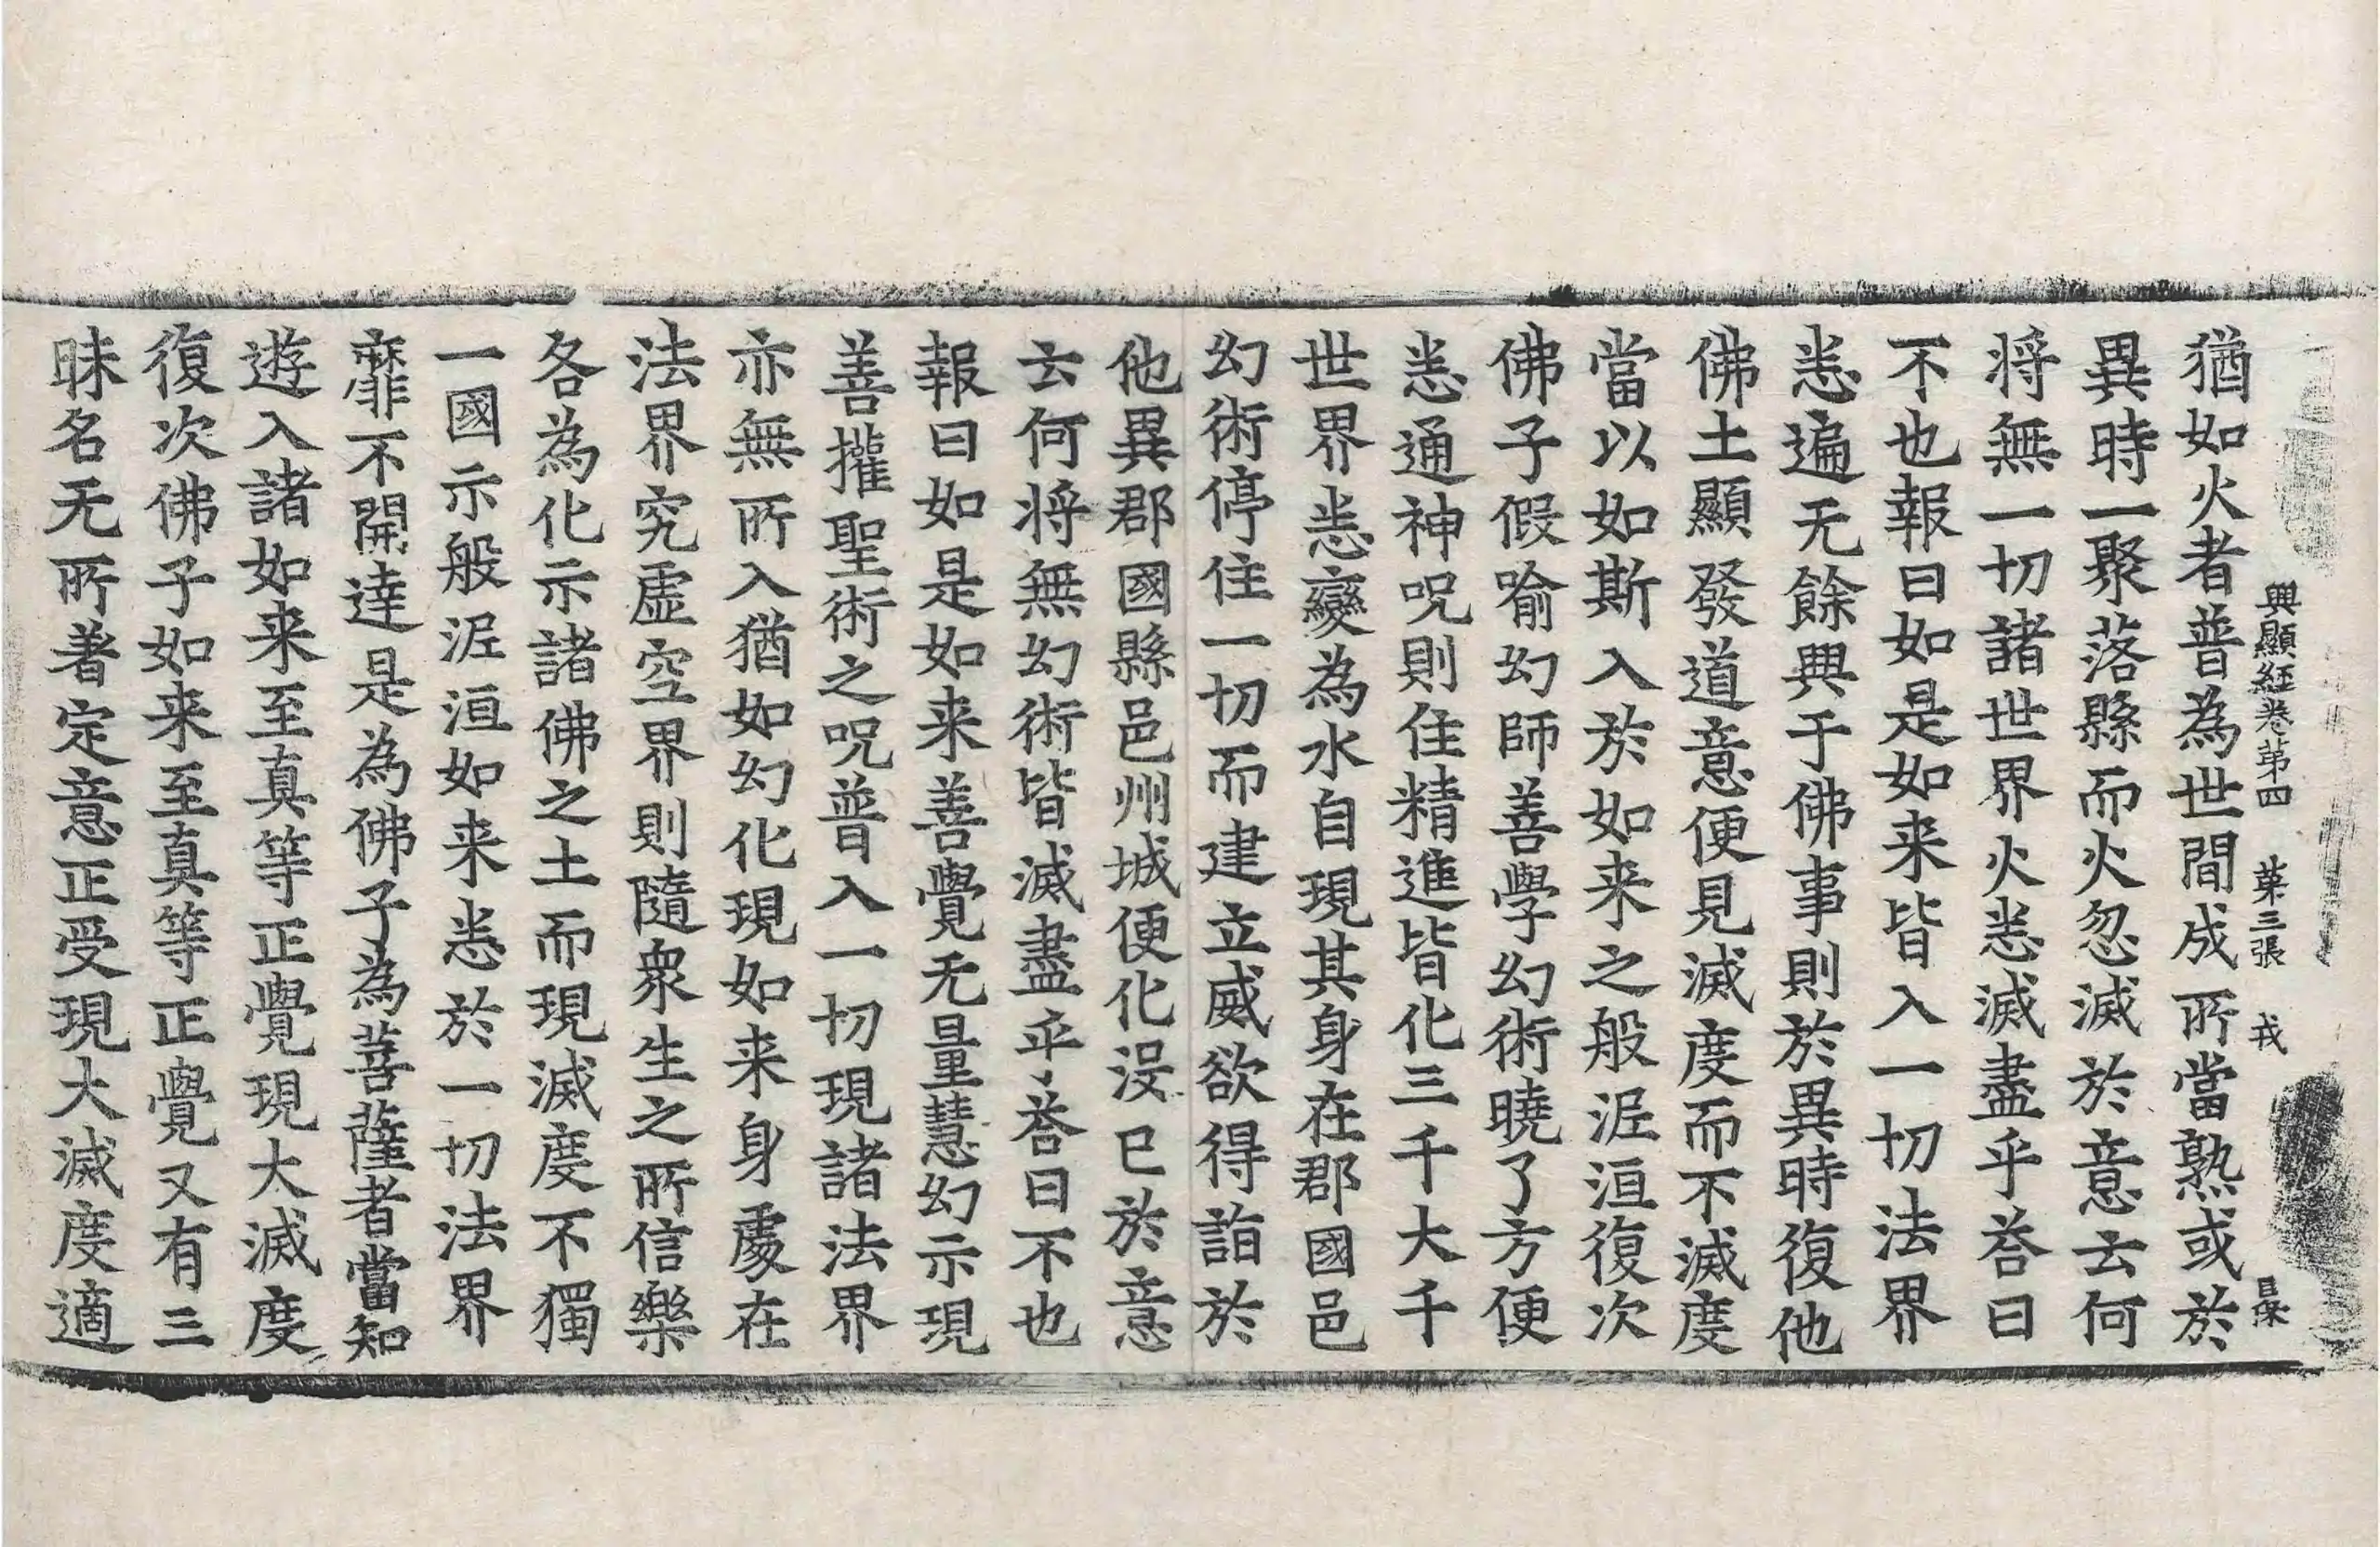 興顯經卷第四 苐三張 戎
猶如火者普為世間成所當熟或於
異時一聚落縣而火忽滅於意云何
将無一切諸世界火悉滅盡乎荅曰
不也報曰如是如来皆入一切法界
悉遍无餘興于佛事則於異時復他
佛土顯發道意便見滅度而不滅度
當以如斯入於如来之般泥洹復次
佛子假喻幻師善學幻術曉了方便
悉通神呪則住精進皆化三千大千
世界悉變為水自現其身在郡國邑
幻術停住一切而建立威欲得詣於
他異郡國縣邑州城便化沒已於意
云何将無幻術皆滅盡乎荅曰不也
報曰如是如来善覺无量慧幻示現
善攉聖術之呪普入一切現諸法界
亦無所入猶如幻化現如来身處在
法界究虛空界則隨衆生之所信樂
各為化示諸佛之土而現滅度不獨
一國示般泥洹如来悉於一切法界
靡不開達是為佛子為菩薩者當知
遊入諸如来至真等正覺現大滅度
復次佛子如来至真等正覺又有三
昧名无所著定意正受現大滅度適